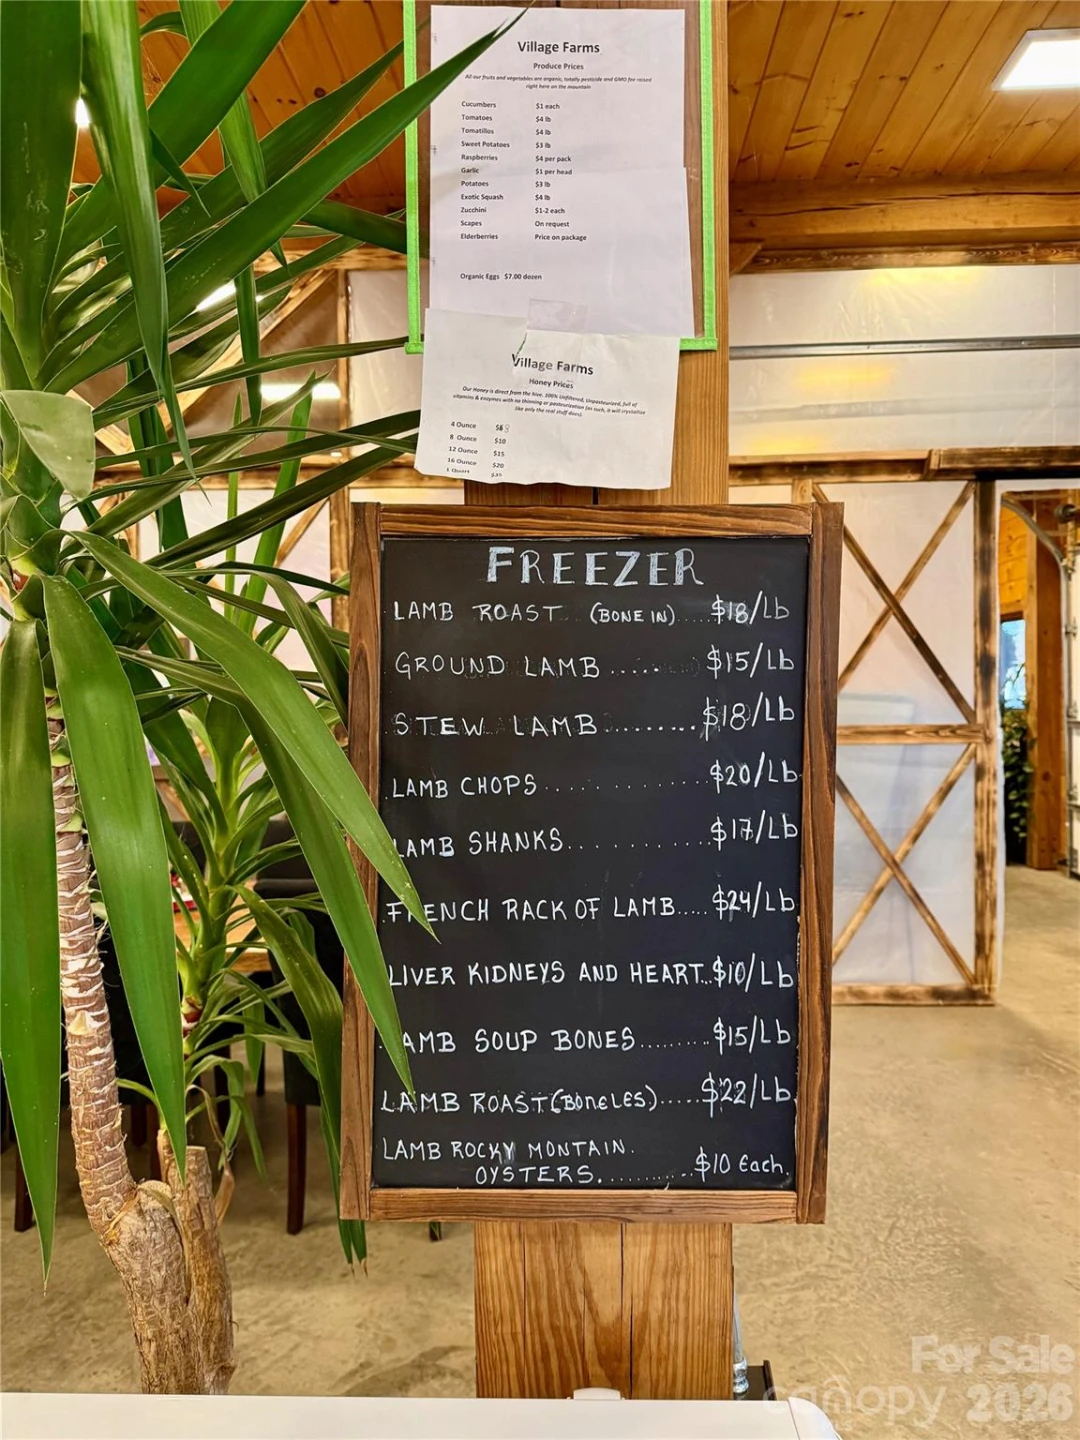 Village Farms
Produce Prices
All our fruits and vegetables are organic, totally pesticide and GMO fee raised
right here on the mountain
Cucumbers $1 each
Tomatoes $4 lb
Tomatillos $4 lb
Sweet Potatoes $3 lb
Raspberries $4 per pack
Garlic $1 per head
Potatoes $3 lb
Exotic Squash $4 lb
Zucchini $1-2 each
Scapes On request
Elderberries Price on package
Organic Eggs $7.00 dozen
Village Farms
Honey Prices
Our Honey is direct from the hive. 100% Unfiltered, Unpasteurized, full of
vitamins & enzymes with no thinning or pasteurization (as such, it will crystalize
like only the real stuff does).
4 Ounce
8 Ounce $10
12 Ounce $15
16 Ounce $20
1 Quart
FREEZER
LAMB ROAST (BONE IN).....$18/Lb
GROUND LAMB ..... $15/Lb
STEW LAMB.........$18/Lb
LAMB CHOPS............$20/Lb
LAMB SHANKS...........$17/Lb
FRENCH RACK OF LAMB.....$24/Lb
LIVER KIDNEYS AND HEART..$10/Lb
LAMB SOUP BONES.........$15/Lb
LAMB ROAST (BONELES).....$22/Lb
LAMB ROCKY MONTAIN.
OYSTERS...........$10 Each.
For Sale
canopy 2026
MLS